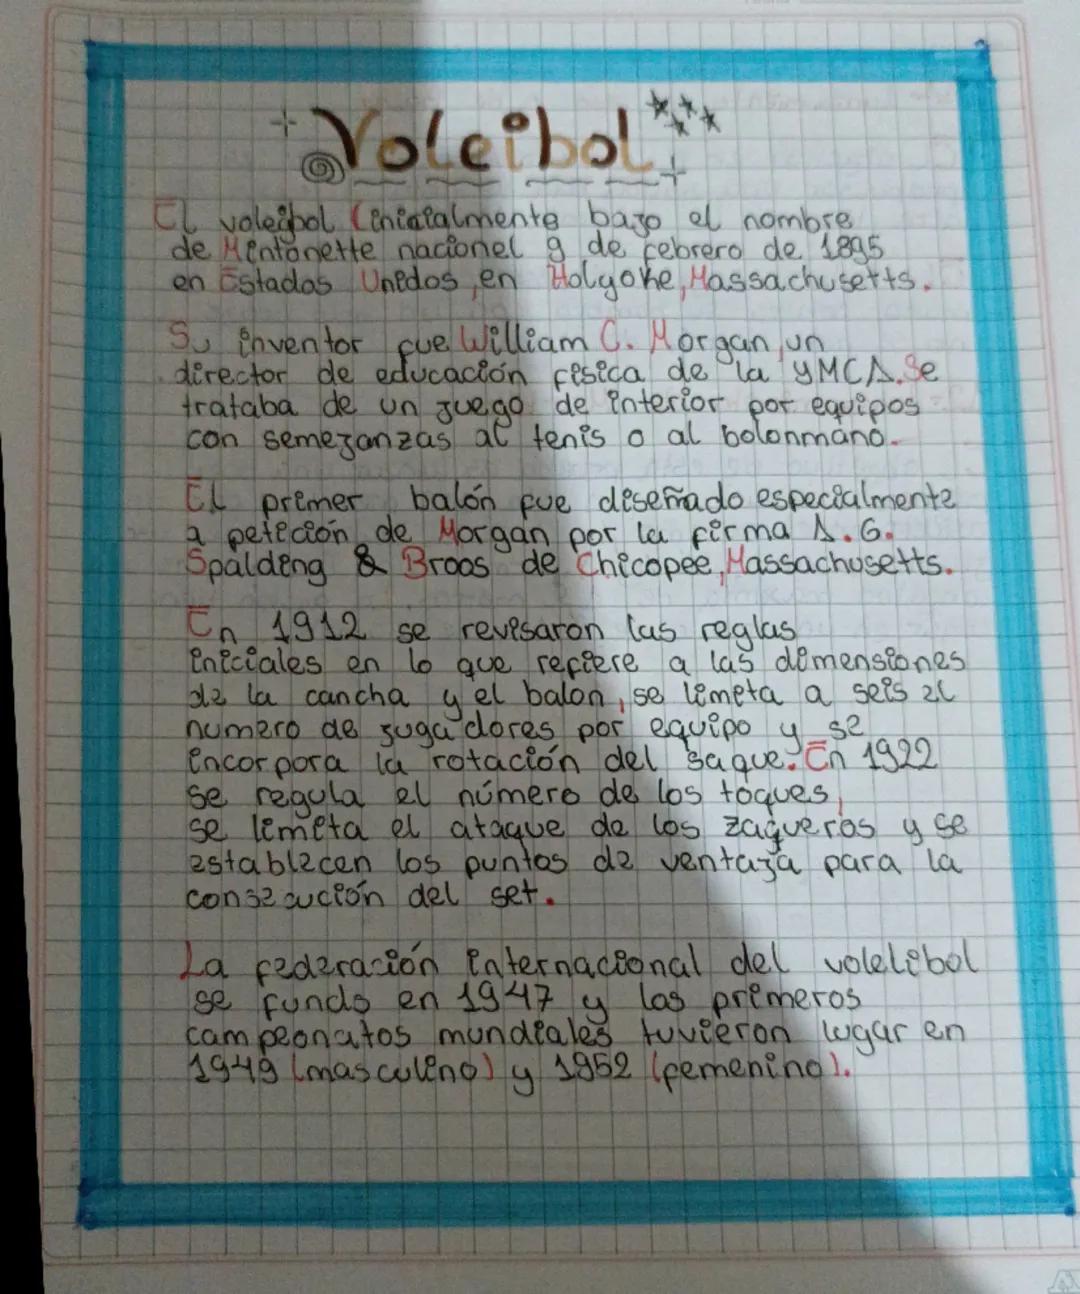 Voleibol
El voleibol (inicialmente bajo el nombre
de Mintonette nacionel 9 de febrero de 1895
en Estados Unidos, en Holyoke, Massachusetts.
Su inventor fue William C. Morgan, un
director de educación física de la YMCA. Se
trataba de un juego de interior por equipos
con semejanzas al tenis o al bolonmano.
El primer balón fue diseñado especialmente
a petición de Morgan por la firma A. G.
Spalding & Broos de Chicopee, Massachusetts.
En 1912 se revisaron las reglas
iniciales en lo que refiere a las dimensiones
de la cancha y el balon, se limeta a seis el
numero de jugadores por equipo y se
incorpora la rotación del saque. En 1922
se regula el número de los toques,
se limita el ataque de los zagueros y se
establecen los puntos de ventaja para la
consecución del set.
La federación internacional del volelibol
se fundo en 1947 y los primeros
campeonatos mundiales tuvieron lugar en
1949 (masculino) y 1952 (femenino).